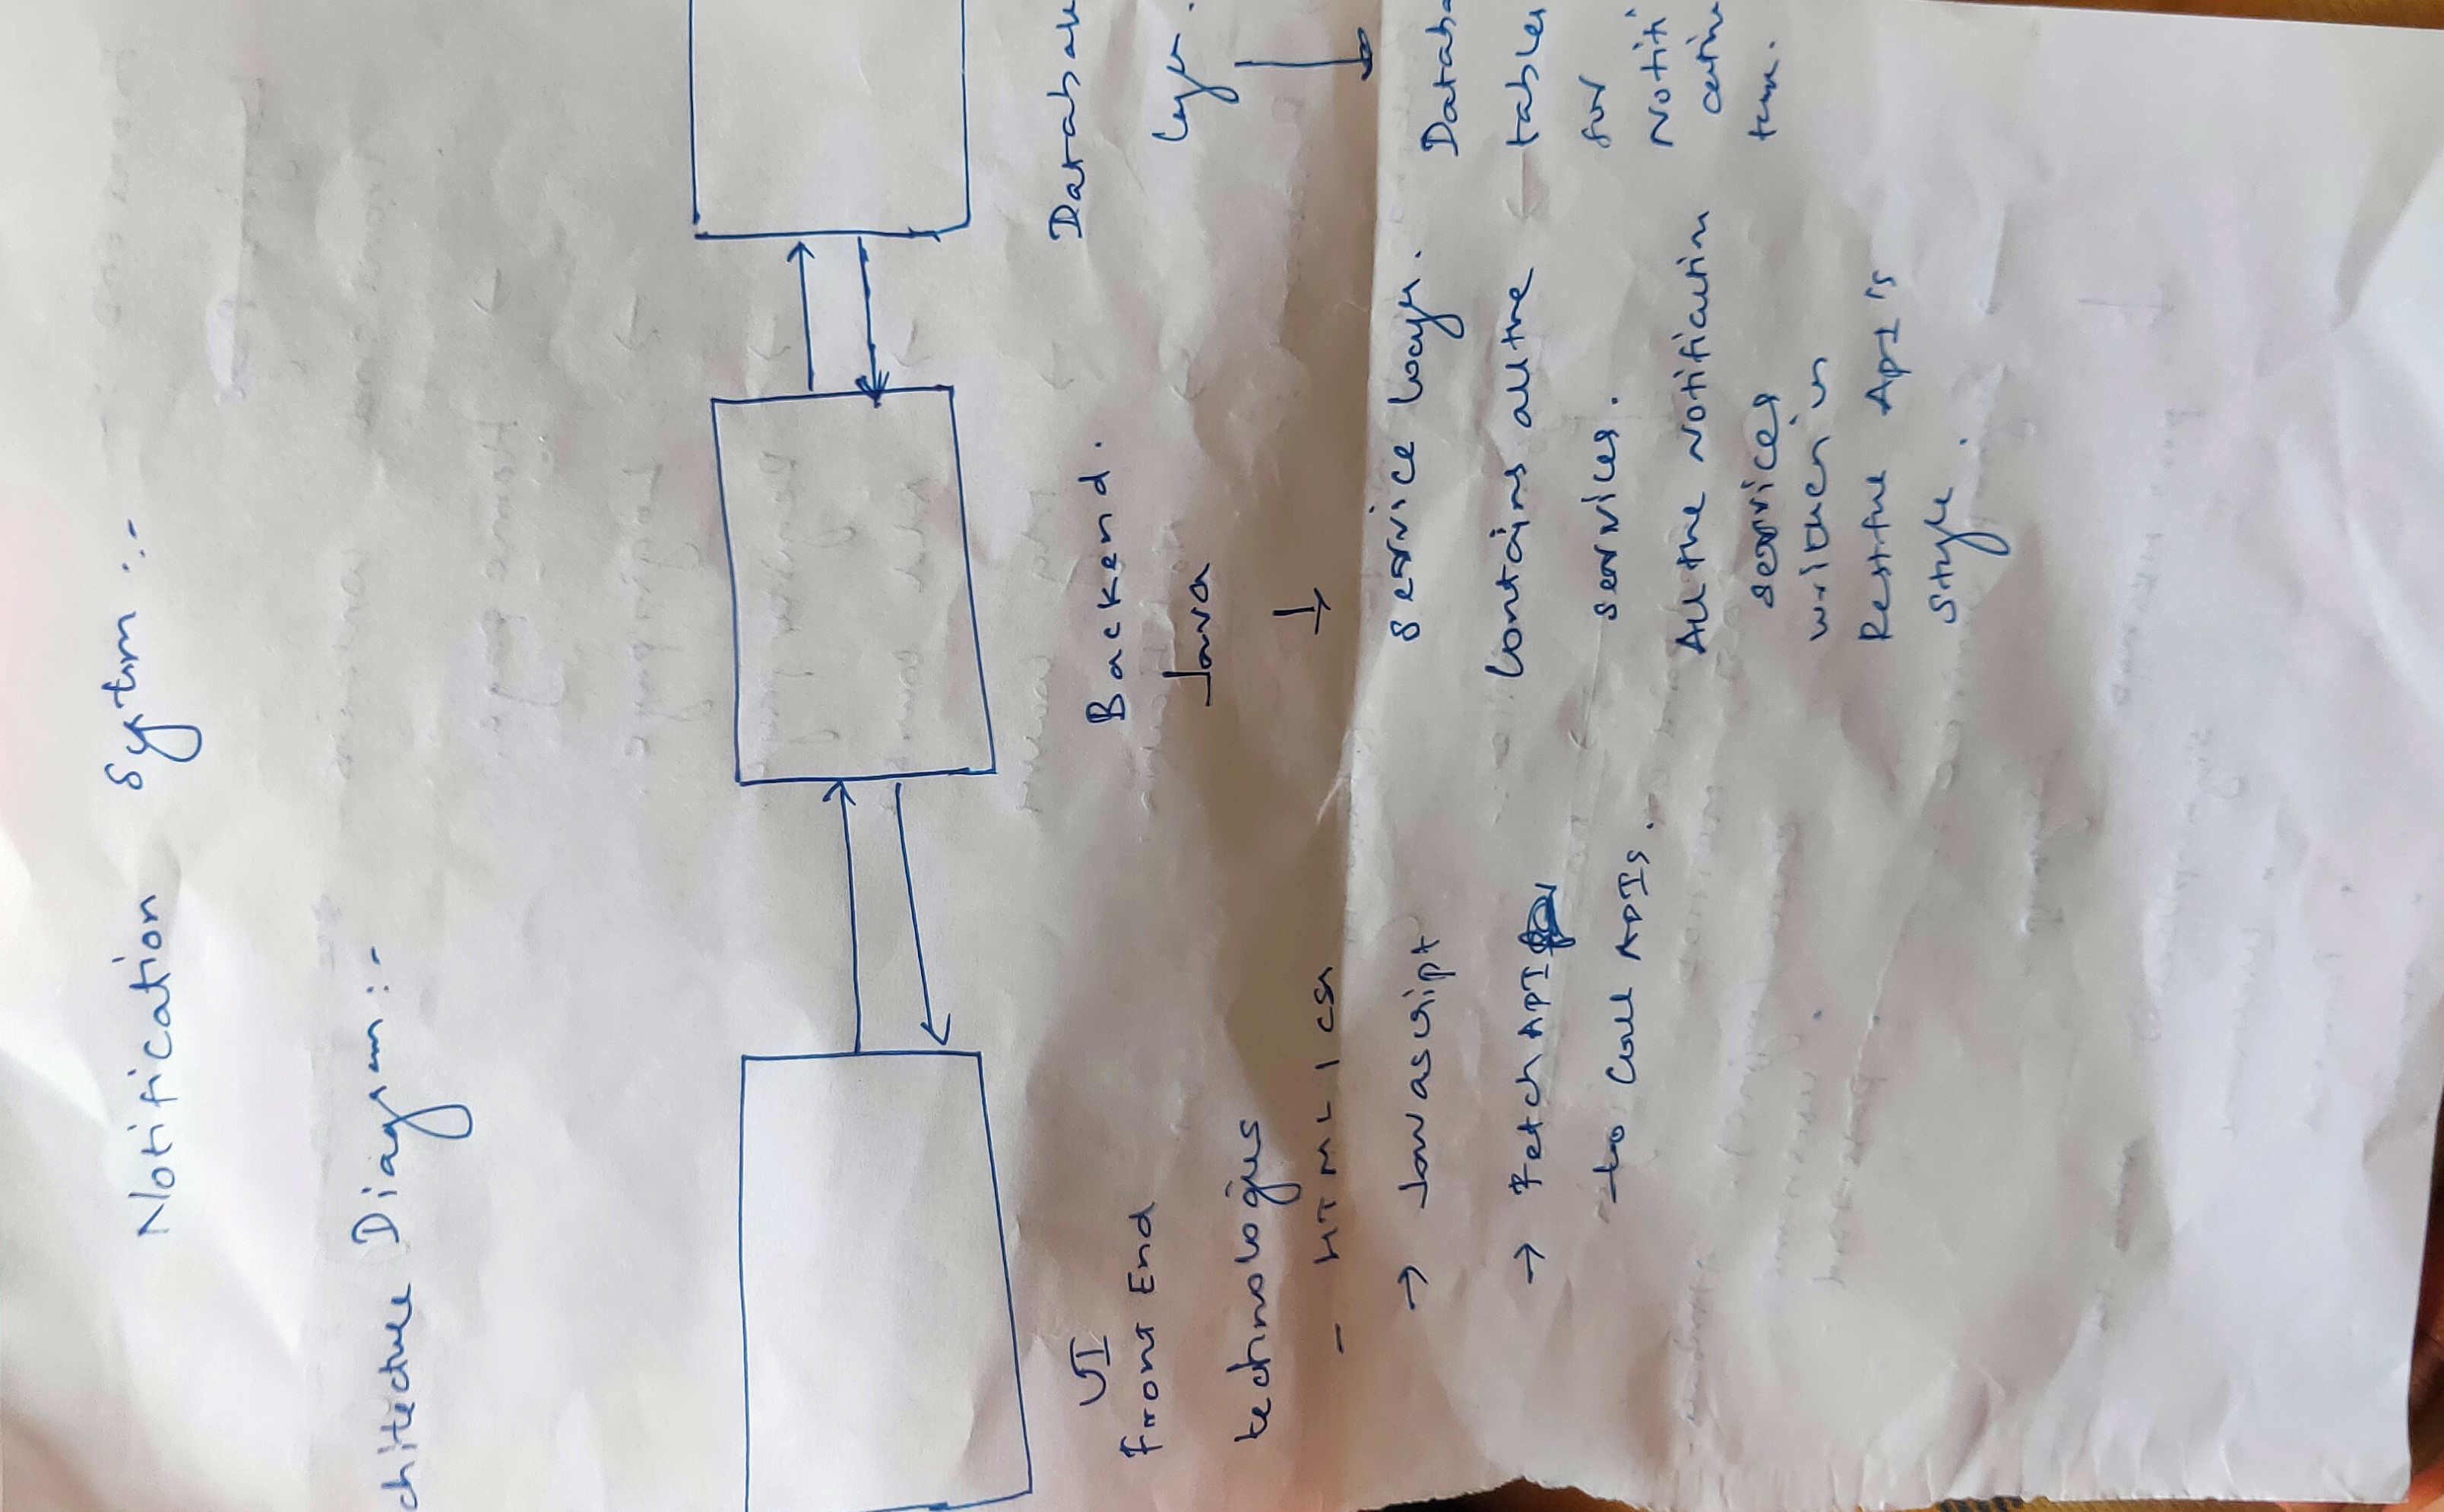 Notification System :-
chitecture Diagram :-
UI
Front End
technologies
- HTML / CSS
→ Javascript
→ Fetch API
to Call APIs.
Backend.
Java
Service Layer.
Contains all the
services.
All the Notification
services
written in
Restful API's
style.
Databas
Layer.
Databa
tables
for
Notifi
cation